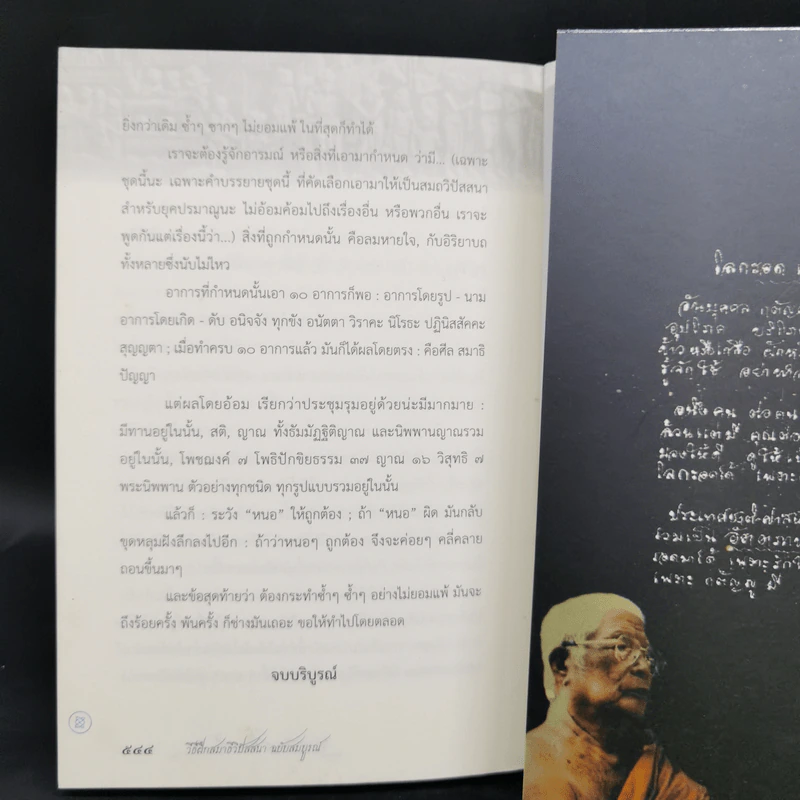 ยิ่งกว่าเดิม ซ้ำๆ ซากๆ ไม่ยอมแพ้ ในที่สุดก็ทำได้
เราจะต้องรู้จักอารมณ์ หรือสิ่งที่เอามากำหนด ว่ามี... (เฉพาะ
ชุดนี้นะ เฉพาะคำบรรยายชุดนี้ ที่คัดเลือกเอามาให้เป็นสมถวิปัสสนา
สำหรับยุคปรมาณูนะ ไม่อ้อมค้อมไปถึงเรื่องอื่น หรือพวกอื่น เราจะ
พูดกันแต่เรื่องนี้ว่า...) สิ่งที่ถูกกำหนดนั้น คือลมหายใจ, กับอิริยาบถ
ทั้งหลายซึ่งนับไม่ไหว
อาการที่กำหนดนั้นเอา ๑๐ อาการก็พอ : อาการโดยรูป - นาม
อาการโดยเกิด - ดับ อนิจจัง ทุกขัง อนัตตา วิราคะ นิโรธะ ปฏินิสสัคคะ
สุญญตา ; เมื่อทำครบ ๑๐ อาการแล้ว มันก็ได้ผลโดยตรง : คือศีล สมาธิ
ปัญญา
แต่ผลโดยอ้อม เรียกว่าประชุมรุมอยู่ด้วยน่ะมีมากมาย :
มีทานอยู่ในนั้น, สติ, ญาณ ทั้งธัมมัฏฐิติญาณ และนิพพานญาณรวม
อยู่ในนั้น, โพชฌงค์ ๗ โพธิปักขิยธรรม ๓๗ ญาณ ๑๖ วิสุทธิ ๗
พระนิพพาน ตัวอย่างทุกชนิด ทุกรูปแบบรวมอยู่ในนั้น
แล้วก็ : ระวัง “หนอ” ให้ถูกต้อง ; ถ้า “หนอ” ผิด มันกลับ
ขุดหลุมฝังลึกลงไปอีก : ถ้าว่าหนอๆ ถูกต้อง จึงจะค่อยๆ คลี่คลาย
ถอนขึ้นมาๆ
และข้อสุดท้ายว่า ต้องกระทำซ้ำๆ ซ้ำๆ อย่างไม่ยอมแพ้ มันจะ
ถึงร้อยครั้ง พันครั้ง ก็ช่างมันเถอะ ขอให้ทำไปโดยตลอด
จบบริบูรณ์
๕๔๔ วิธีฝึกสมาธิวิปัสสนา ฉบับสมบูรณ์
โลกรอด
อันบุคคล กตัญ
อุปโภค บริโภ
รู้จักใช้
อนึ่งคน ต่อคน
ล้วนแต่มี คุณต่อ
มองให้ดี ดูให้
โลกรอดได้ เพราะ
รวมเป็น
รอดมาได้ เพราะ
เพราะ กตัญญู มี